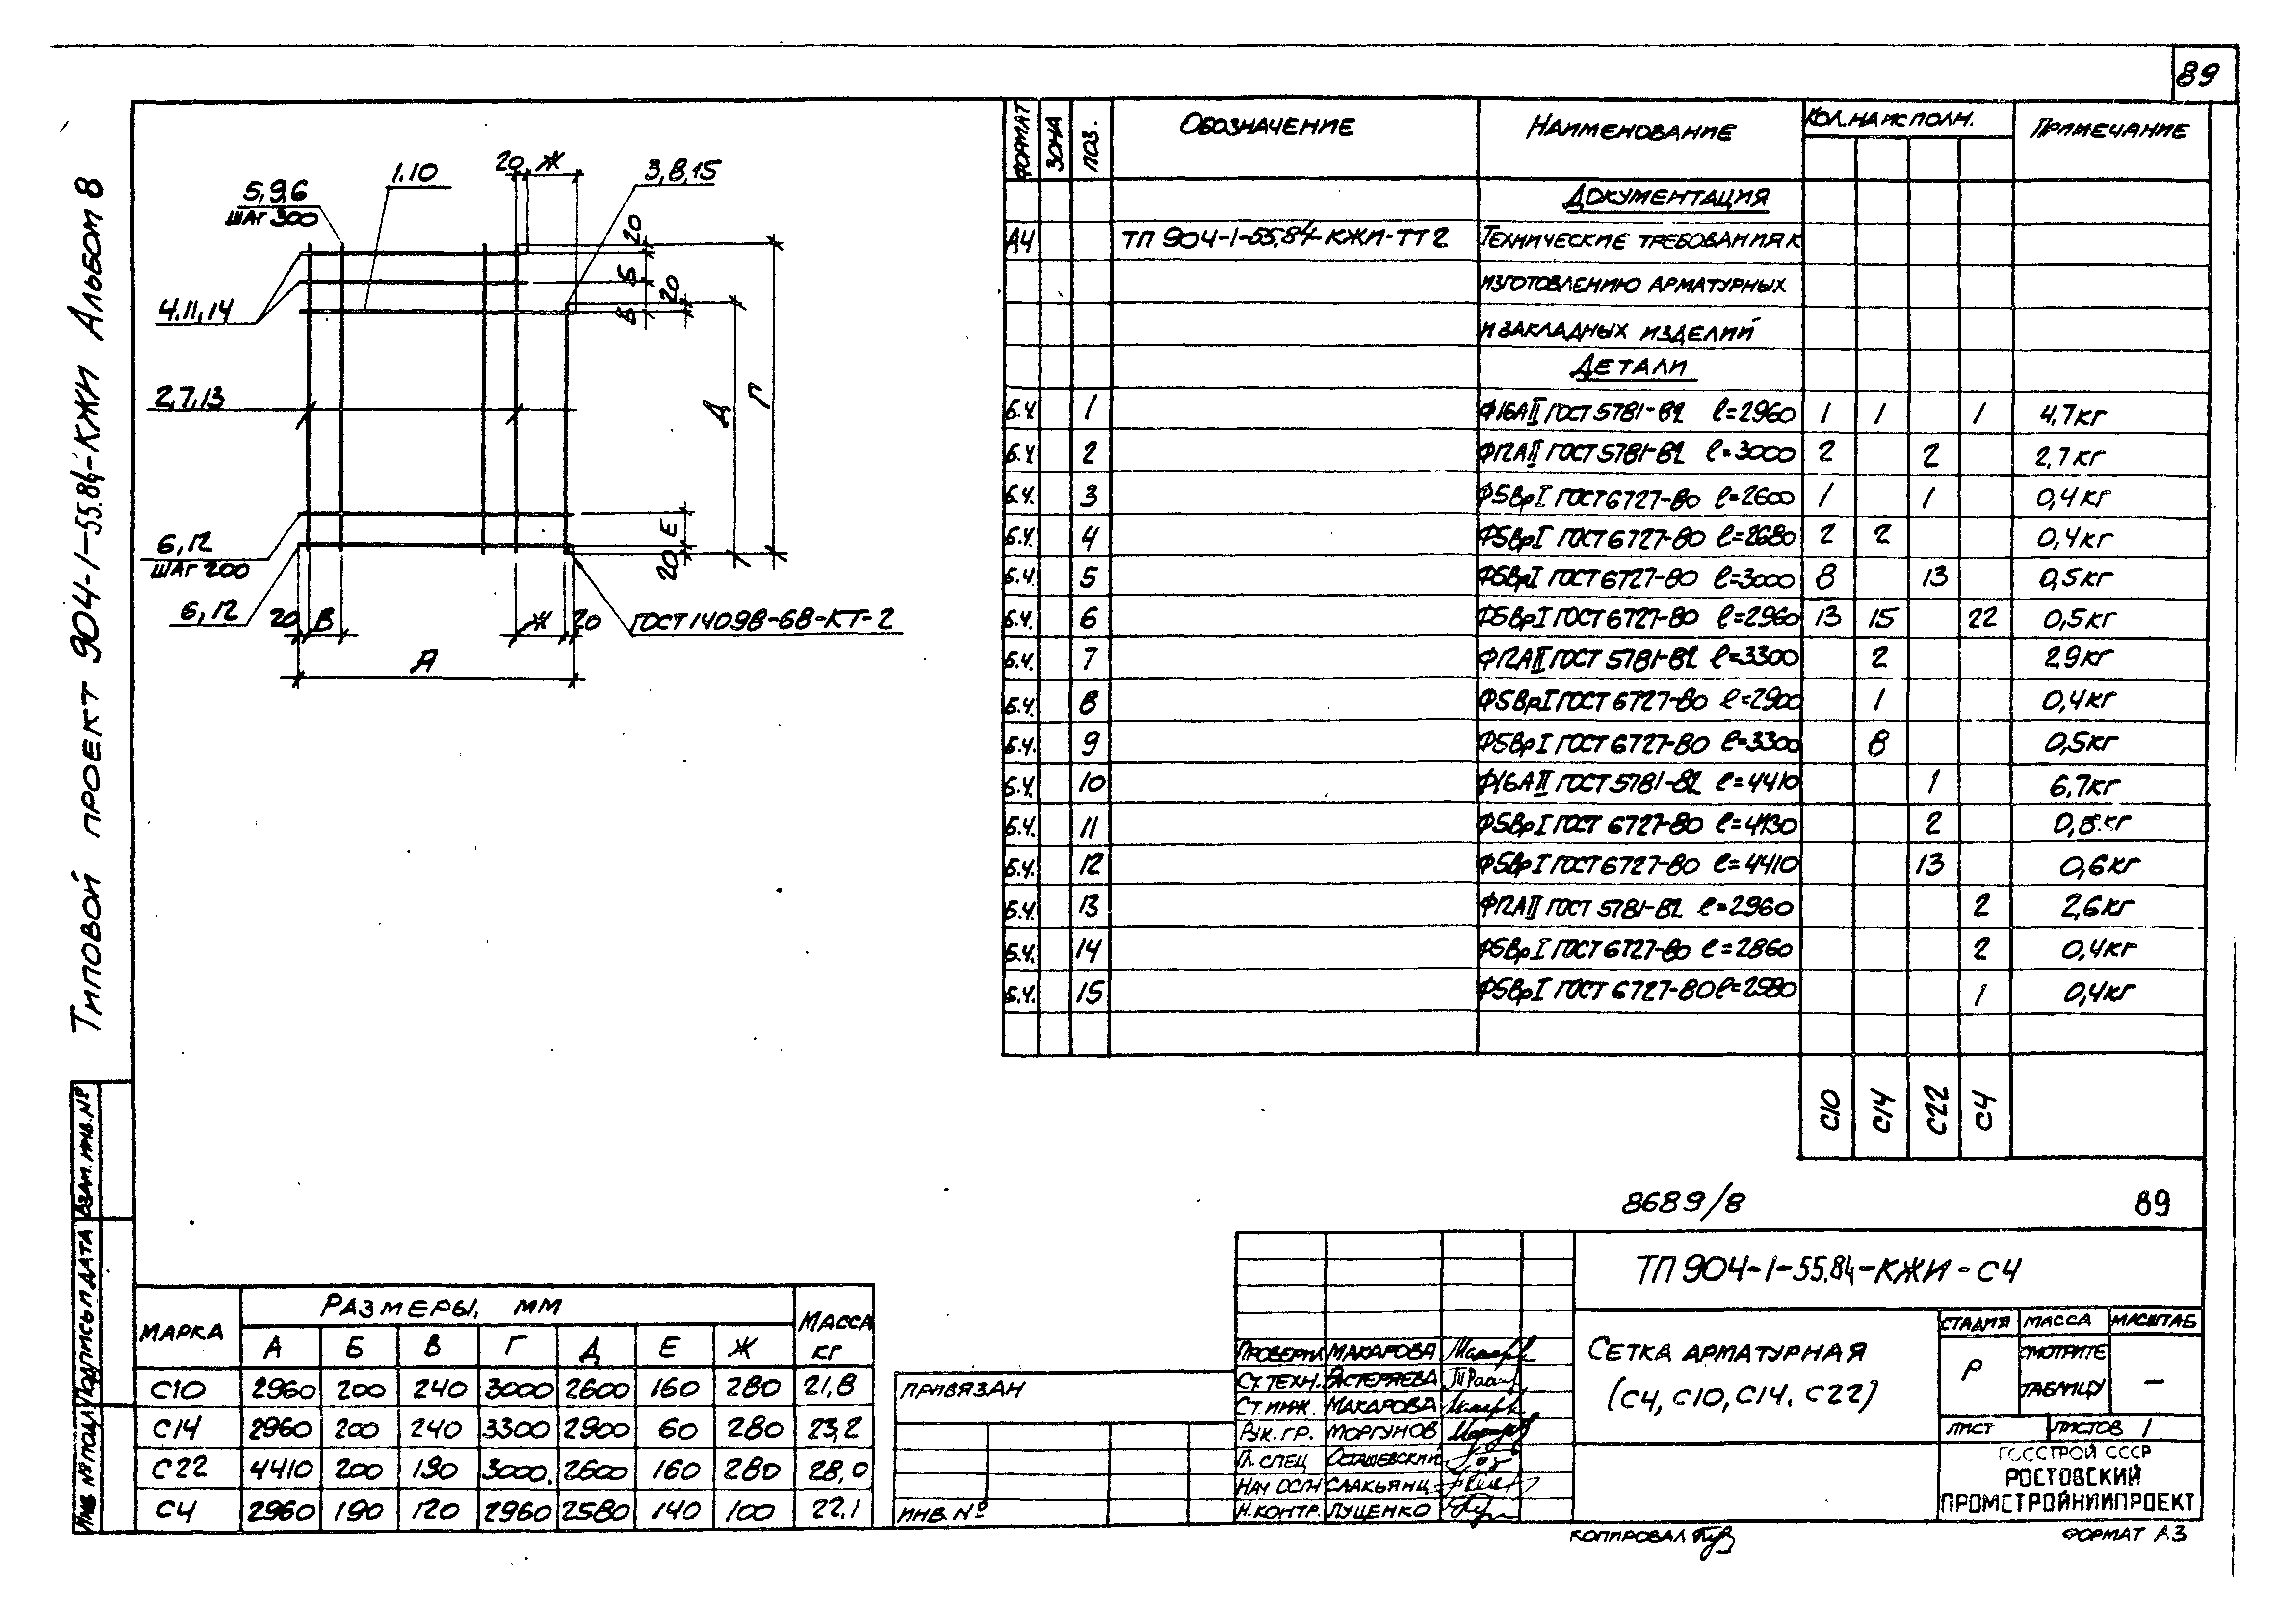 89
Типовой проект 904-1-55.84-КЖИ Альбом 8
5,9,6
шаг 300
1.10
20 Ж
3,8,15
20
Б
20
Б
4.11,14
2,7,13
Д
Г
6,12
шаг 200
6,12
Е
20
20 В
Ж 20
ГОСТ 14098-68-КТ-2
А
Формат Зона Поз. Обозначение Наименование Кол. на исполн. Примечание
Документация
А4 ТП 904-1-55.84-КЖИ-ТТ2 Технические требования к
изготовлению арматурных
и закладных изделий
Детали
Б.Ч. 1 Ф16АII ГОСТ 5781-82 ℓ=2960 1 1 1 4,7кг
Б.Ч. 2 Ф12АII ГОСТ 5781-82 ℓ=3000 2 2 2,7кг
Б.Ч. 3 Ф5ВрI ГОСТ 6727-80 ℓ=2600 1 1 0,4кг
Б.Ч. 4 Ф5ВрI ГОСТ 6727-80 ℓ=2680 2 2 0,4кг
Б.Ч. 5 Ф5ВрI ГОСТ 6727-80 ℓ=3000 8 13 0,5кг
Б.Ч. 6 Ф5ВрI ГОСТ 6727-80 ℓ=2960 13 15 22 0,5кг
Б.Ч. 7 Ф12АII ГОСТ 5781-82 ℓ=3300 2 2,9кг
Б.Ч. 8 Ф5ВрI ГОСТ 6727-80 ℓ=2900 1 0,4кг
Б.Ч. 9 Ф5ВрI ГОСТ 6727-80 ℓ=3300 8 0,5кг
Б.Ч. 10 Ф16АII ГОСТ 5781-82 ℓ=4410 1 6,7кг
Б.Ч. 11 Ф5ВрI ГОСТ 6727-80 ℓ=4130 2 0,8кг
Б.Ч. 12 Ф5ВрI ГОСТ 6727-80 ℓ=4410 13 0,6кг
Б.Ч. 13 Ф12АII ГОСТ 5781-82 ℓ=2960 2 2,6кг
Б.Ч. 14 Ф5ВрI ГОСТ 6727-80 ℓ=2860 2 0,4кг
Б.Ч. 15 Ф5ВрI ГОСТ 6727-80 ℓ=2580 1 0,4кг
С10 С14 С22 С4
8689/8 89
Инв. № подл. Подпись и дата Взам. инв. №
Марка Размеры, мм Масса кг
А Б В Г Д Е Ж
С10 2960 200 240 3000 2600 160 280 21,8
С14 2960 200 240 3300 2900 60 280 23,2
С22 4410 200 190 3000. 2600 160 280 28,0
С4 2960 190 120 2960 2580 140 100 22,1
Привязан
Инв. №
ТП 904-1-55.84-КЖИ-С4
Проверил Макарова
Ст. техн. Растеряева
Ст. инж. Макарова
Рук. гр. Моргунов
Гл. спец Осташевский
Нач осп Саакьянц
Н. контр. Луценко
Сетка арматурная
(С4, С10, С14. С22)
Стадия Масса Масштаб
Р Смотрите таблицу —
Лист Листов 1
Госстрой СССР
Ростовский
Промстройниипроект
Копировал
Формат А3